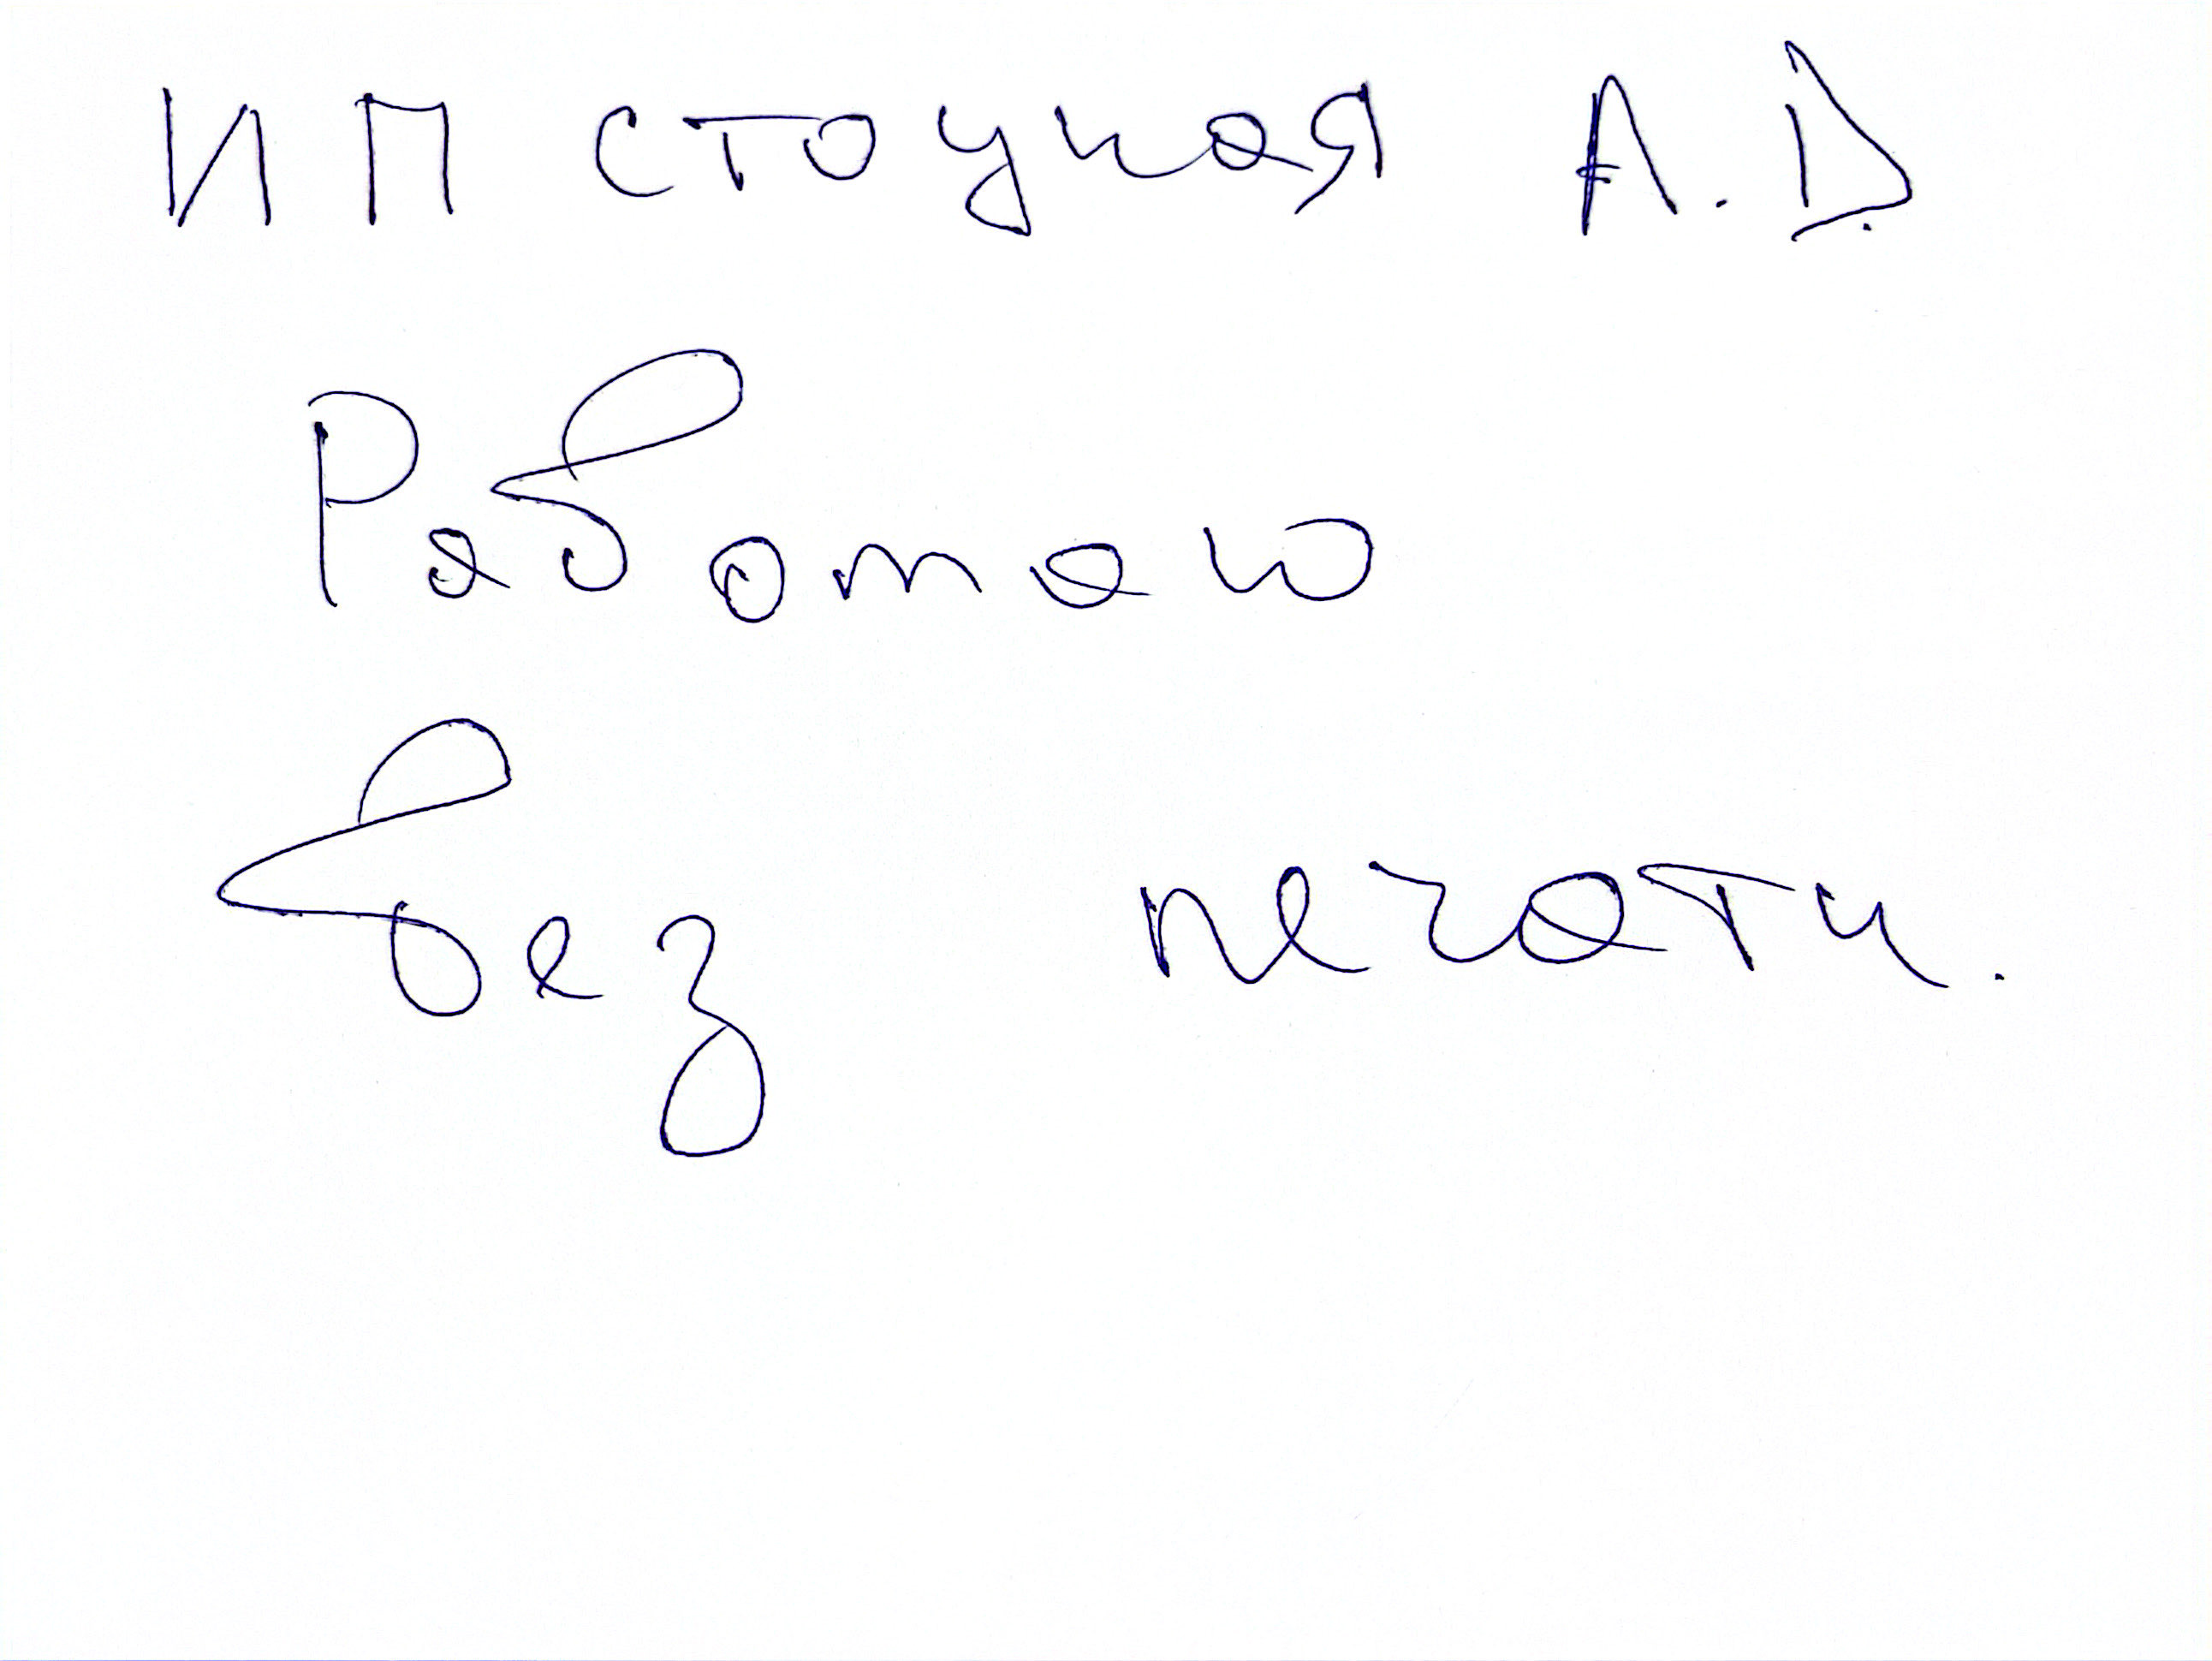 ИП Стоцкая А.D.
Работаю
без печати.